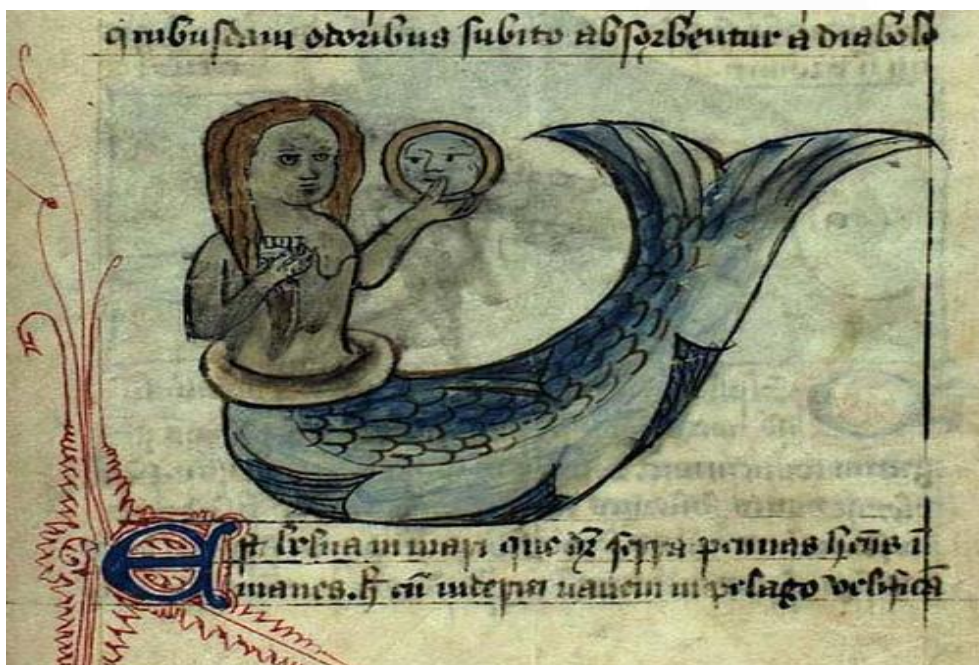 quibusdam odoribus subito absorbentur a diabolo
Est belua in mari que dr̄ serra pennas hn̄s i
manes. h̄ cū viderit navem in pelago velificā